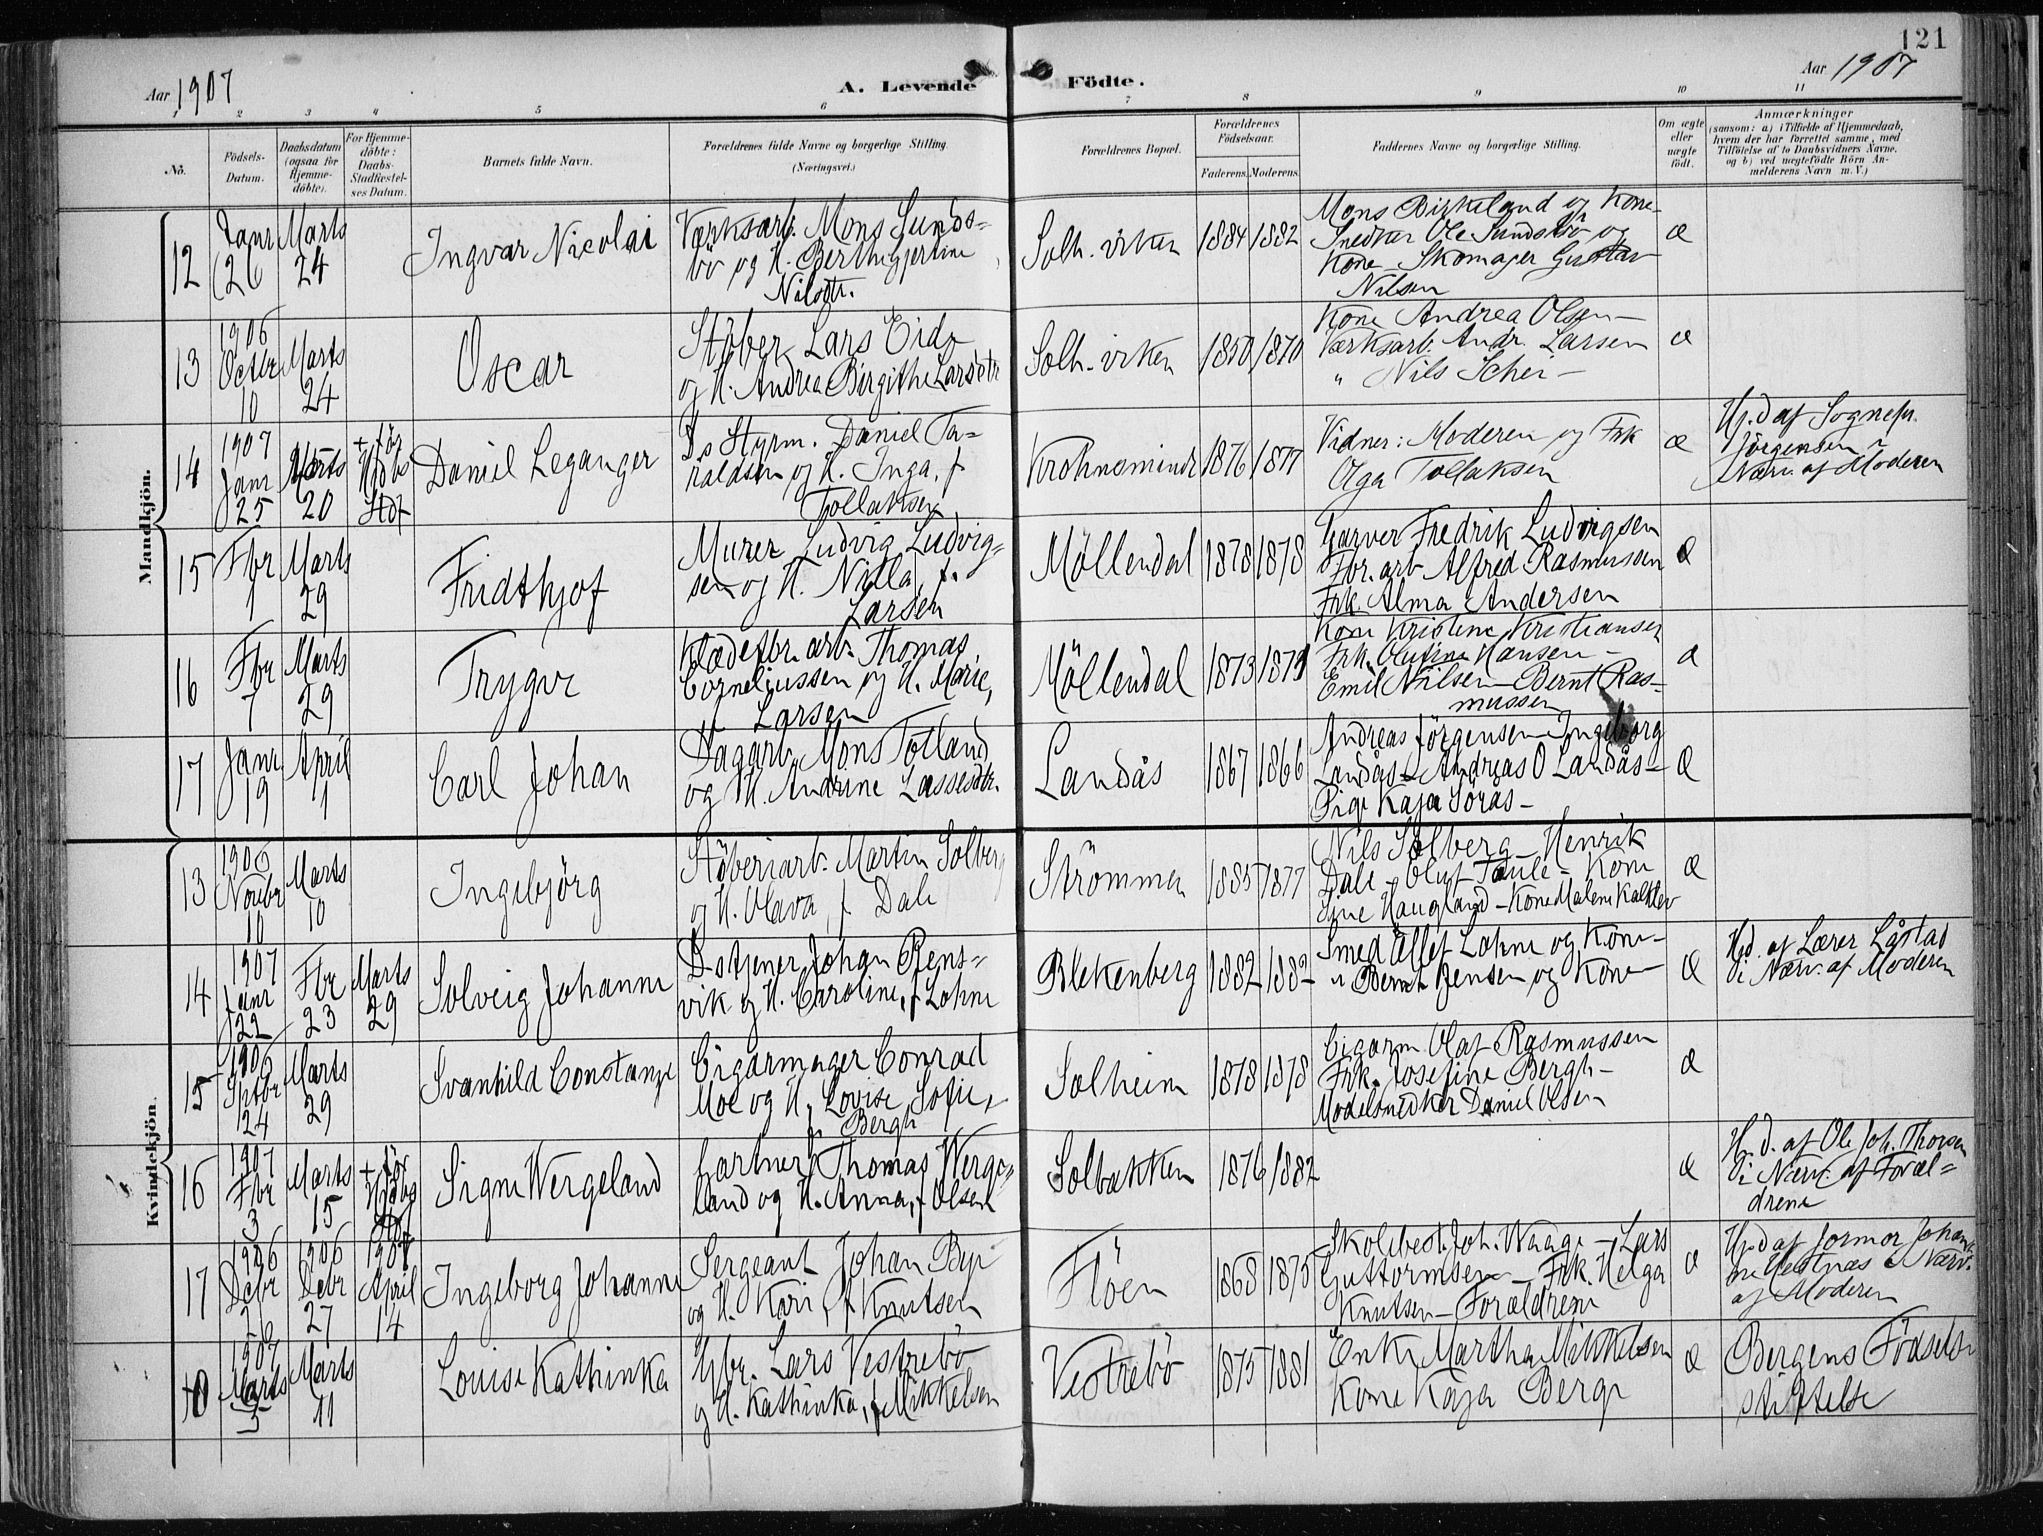 121
Aar 1907
A. Levende Födte.
Aar 1907
1 2 3 4 5 6 7 8 9 10 11
No.
Födsels-Datum.
Daabsdatum (ogsaa for Hjemme-döbte).
For Hjemme-döbte: Daabs-Stadfæstel-ses Datum.
Barnets fulde Navn.
Forældrenes fulde Navne og borgerlige Stilling.
(Næringsvei.)
Forældrenes Bopæl.
Forældrenes Födselsaar.
Faderens. Moderens.
Faddernes Navne og borgerlige Stilling.
Om ægte eller uægte født.
Anmærkninger
(saasom: a) i Tilfælde af Hjemmedaab,
hvem der har forrettet samme, med
Tilföielse af to Daabsvidners Navne.
og b) ved uægtefödte Börn An-
melderens Navn m. V.)
Mandkjön.
12 Janr 26 Marts 24 Ingvar Nicolai
Værksarb. Mons Sunds-
bö og H. Berthe Gjertine
Nilsdtr.
Solh. virken 1884 1882
Mons Birkeland og Kone-
Snedker Ole Sundsbö og
Kone Skomager Gustav
Nilsen
æ
13 1906 Octbr 10 Marts 24 Oscar
Stöber Lars Eide
og H. Andrea Birgithe Larsdtr
Solh. virken 1850 1870
Kone Andrea Olsen-
Værksarb. Andr. Larsen
" Nils Schei -
æ
14 1907 Janr 25 Marts 20 + för Hjdbs Stdf Daniel Leganger
Ds Styrm. Daniel Ha-
raldsen og H. Inga, f
Tollaksen
Krohnsminde 1876 1877
Vidner: Moderen og Frk
Olga Tollaksen
æ
Hj.d af Sognepr.
Jörgensen i
Nærv. af Moderen
15 Fbr 1 Marts 29 Fridthjof
Murer Ludvig Ludvig-
sen og H. Nilla, f.
Larsen
Möllendal 1878 1878
Garver Fredrik Ludvigsen
Fbr. arb Alfred Rasmussen
Frk. Alma Andersen
æ
16 Fbr 7 Marts 29 Trygve
Klædefbr. arb. Thomas
Corneliussen og H. Marie,
f Larsen
Möllendal 1873
Kone Kristine Kristiansen
Frk. Olufine Hansen -
Emil Nilsen - Bernt Ras-
mussen
æ
17 Janr 19 April 1 Carl Johan
Dagarb. Mons Totland
og H. Andrine Lassesdtr.
Landås 1867 1866
Andreas Jörgensen Ingeborg
Landås - Andreas O Landås -
Pige Kaja Sörås -
æ
Kvindekjön.
13 1906 Novbr 10 Marts 10 Ingebjörg
Stöberiarb. Martin Solberg
og H. Olava, f Dale
Strömmen 1885 1877
Nils Solberg - Henrik
Dale - Oluf Taule - Kone
Sine Haugland - Kone Malene Kalklev
æ
14 1907 Janr 22 Fbr 23 Marts 29 Solveig Johanne
D-stjener Johan Rens-
vik og H. Caroline, f Lohne
Blekenberg 1882 1882
Smed Ellef Lohne og Kone-
" Bernt Jensen og Kone-
æ
Hd. af Lærer Låstad
i Nærv. af Moderen
15 1906 Sptbr 24 Marts 29 Svanhild Constanse
Cigarmager Conrad
Moe og H. Lovise Sofie,
f Bergh
Solheim 1878 1878
Cigarm. Olaf Rasmussen
Frk. Josefine Bergh-
Modelsnedker Daniel Olsen
æ
16 1907 Fbr 3 Marts 15 + för Hjdbs Stdf Signe Wergeland
Gartner Thomas Werge-
land og H. Anna, f Olsen
Solbakken 1876 1882
æ
H.d. af Ole Joh. Thorsen
i Nærv. af Foræl-
drene
17 1906 Dcbr 1906 Dcbr 27 1907 April 14 Ingeborg Johanne
Sergeant Johan Bye
og H. Kari, f Knutsen
Flöen 1868 1875
Skolebest. Joh. Waage - Lars
Guttormsen - Frk. Helga
Knutsen - Forældrene
æ
Hj.d af Jormor Johan-
ne Hestnæs i Nærv.
af Moderen
1907 Marts 5 Marts 11 Louise Kathinka
Gbr. Lars Vestrebö
og H. Kathinka, f Mikkelsen
Vestrebö 1875 1881
Enke Martha Mikkelsen
Kone Kaja Berge
æ
Bergens Födsels-
stiftelse